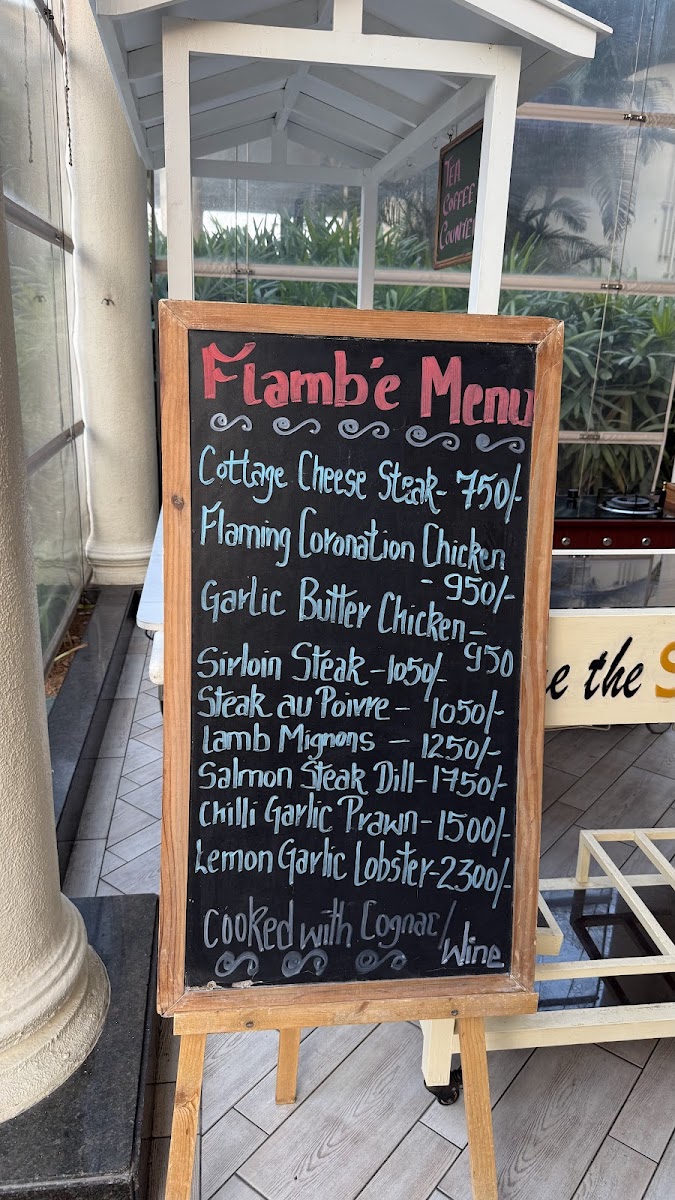 TEA
COFFEE
COUNTER
Flamb'e Menu
Cottage Cheese Steak- 750/-
Flaming Coronation Chicken
- 950/-
Garlic Butter Chicken-
950
Sirloin Steak-1050/-
Steak au Poivre - 1050/-
Lamb Mignons - 1250/-
Salmon Steak Dill-1750/-
Chilli Garlic Prawn-1500/-
Lemon Garlic Lobster-2300/-
Cooked with Cognac/
Wine
the